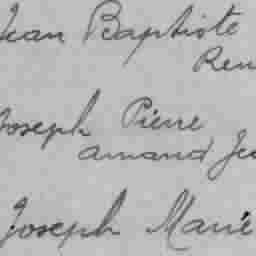 Jean Baptiste
Ren
Joseph Pierre
Amand Je
Joseph Marie